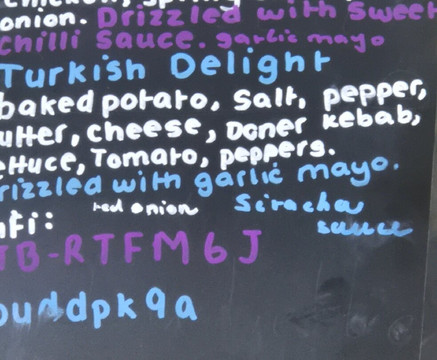 onion. Drizzled with Sweet
chilli sauce. garlic mayo
Turkish Delight
baked potato, Salt, pepper,
utter, cheese, Doner kebab,
ettuce, Tomato, peppers.
rizzled with garlic mayo.
red onion Siracha
sauce
ifi:
TB-RTFM6J
ouddpk9a